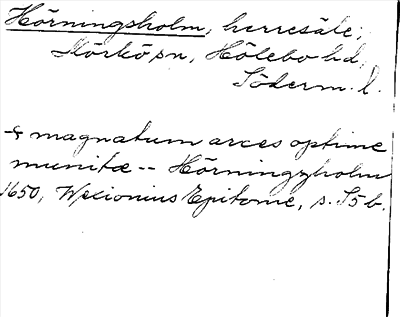 Hörningsholm, herresäte;
Mörkö sn, Hölebo hd,
Söderm. l.
& magnatum arces optime
munitæ -- Hörningzholm
1650, Wexionius Epitome, s. I5b.